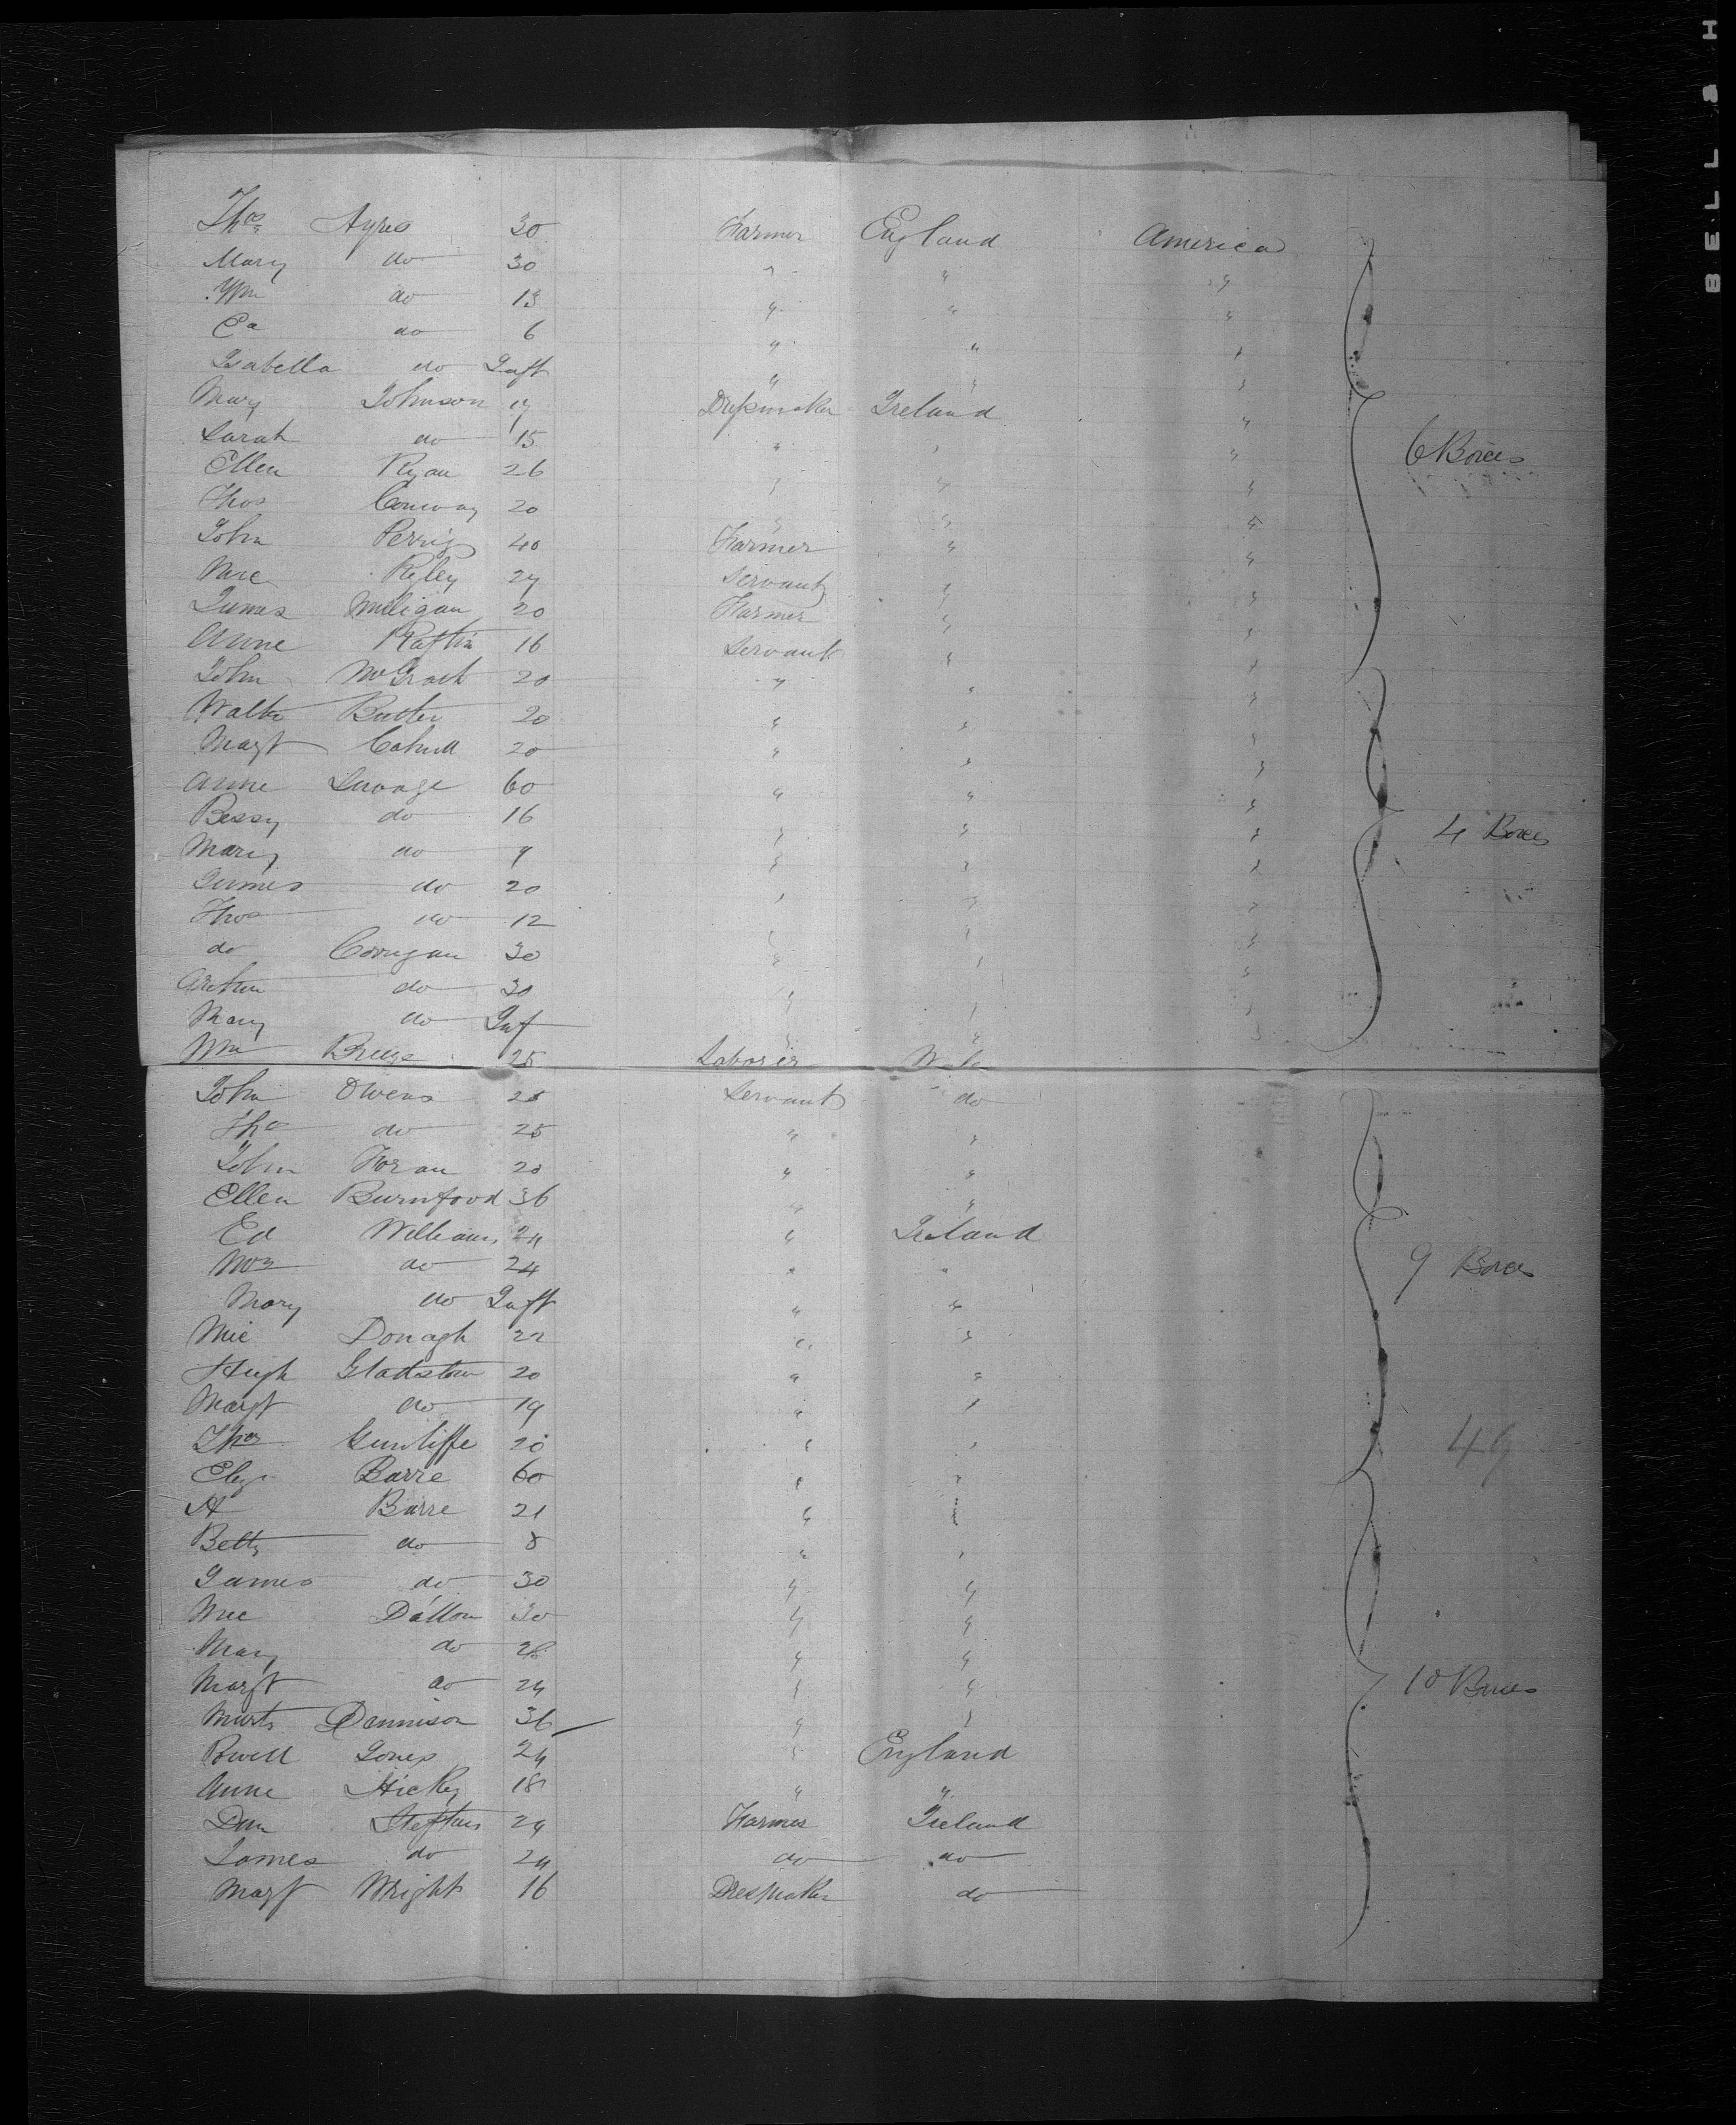 Thos Ayres 30 Farmer England America
Mary do 30 " " "
Wm do 13 " " "
Ea do 6 " " "
Isabella do Inft " " "
Mary Johnson 17 Dressmaker Ireland "
Sarah do 15 " " "
Ellen Ryan 26 " " "
6 Boxes
Thos Conway 20 " " "
John Perrig 40 Farmer " "
Mic Ryley 24 Servant " "
James Milligan 20 Farmer " "
Anne Raftin 16 Servant " "
John McGrath 20 " " "
Walter Butler 20 " " "
Margt Cahill 20 " " "
Anne Savage 60 " " "
Bessy do 16 " " "
4 Boxes
Mary do 9 " " "
James do 20 " " "
Thos do 12 " " "
do Corrigan 30 " " "
Arthur do 30 " " "
Mary do Inf " " "
Wm Breeze 25 Laborer Wales
John Owens 25 Servant do
Tho do 25 " "
John Foran 20 " "
Ellen Burnfood 36 " "
Ed Williams 24 " Ireland
Mrs do 24 " "
9 Boxes
Mary do Inft " "
Mic Donagh 22 " "
Hugh Gladstone 20 " "
Margt do 19 " "
49
Thos Cunliffe 20 " "
Eliza Barre 60 " "
A Barre 21 " "
Betty do 8 " "
James do 30 " "
Mic Dallon 30 " "
Mary do 28 " "
Margt do 24 " "
10 Boxes
Murty Dennison 36 " "
Powell Jones 24 " England
Anne Hickey 18 " "
Dan 24 Farmer Ireland
James do 24 do do
Margt Wright 16 Dressmaker do
BELL & H